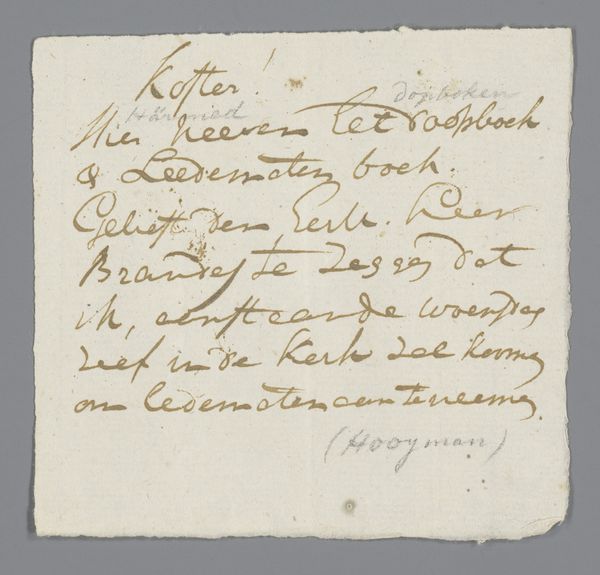 Koster!
Härmed dopboken
Hier neeven het doopboek
& Leedematen boek.
Gelieft den Eerw. Heer
Brandes te zegges dat
ik, aanstaande woensdag
zelf in de Kerk zal koomen
om ledematen aanteneemen.
(Hooyman)